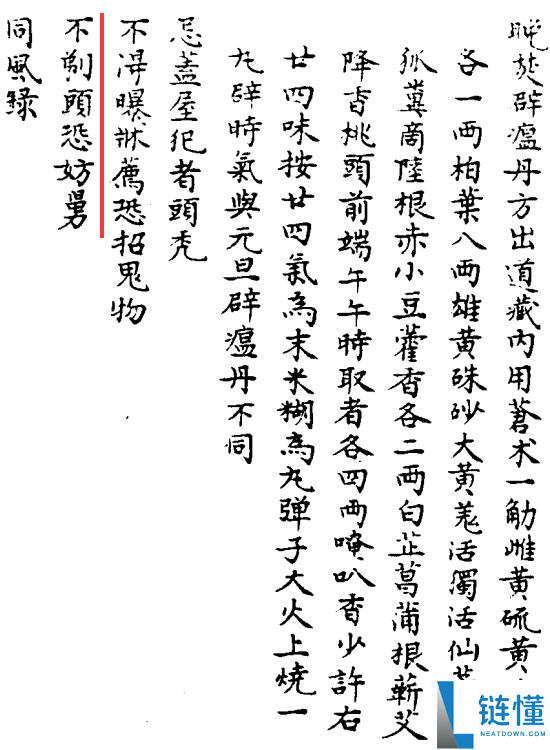 晚焚辟瘟丹方出道藏内用蒼术一觔雌黄硫黄
各一两柏葉八两雄黄硃砂大黄羗活獨活仙
狐糞商陸根赤小豆藿香各二两白芷菖蒲根蕲艾
降香桃頭前端午午時取者各四两唵叭香少許右
廿四味按廿四氣為末米糊為丸弹子大火上燒一
丸辟時氣與元旦辟瘟丹不同
忌蓋屋犯者頭禿
不淂曝牀薦恐招鬼物
不剃頭恐妨舅
同風録
链懂
NEATDOWN.COM